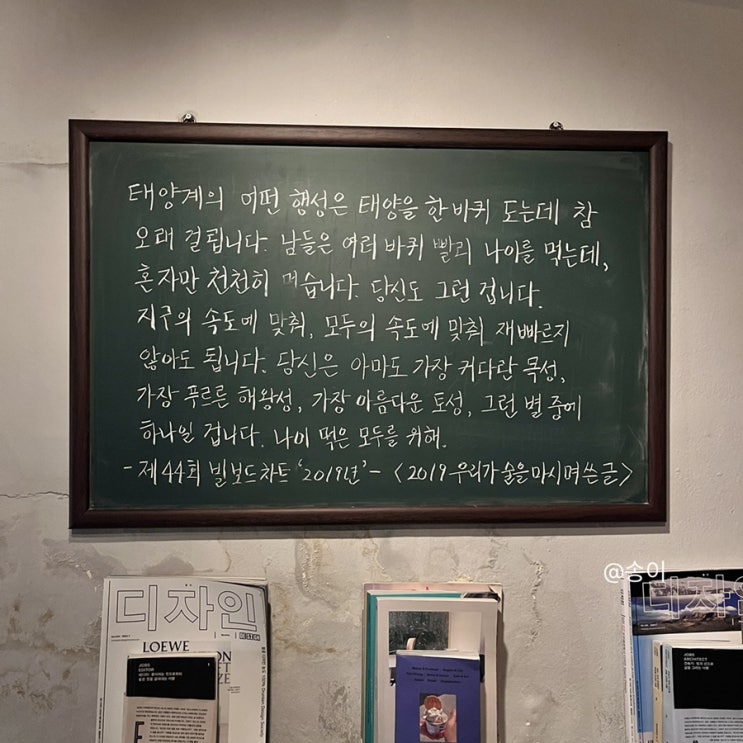 태양계의 어떤 행성은 태양을 한 바퀴 도는데 참
오래 걸립니다. 남들은 여러 바퀴 빨리 나이를 먹는데,
혼자만 천천히 먹습니다. 당신도 그런 겁니다.
지구의 속도에 맞춰, 모두의 속도에 맞춰 재빠르지
않아도 됩니다. 당신은 아마도 가장 커다란 목성,
가장 푸르른 해왕성, 가장 아름다운 토성, 그런 별 중에
하나일 겁니다. 나이 먹은 모두를 위해.
- 제 44회 빌보드차트 '2019년' - <2019 우리가 술을 마시며 쓴 글>
@송이
디자인
DESIGN
LOEWE
JOBS
EDITOR
디자인
JOBS
ARCHITECT